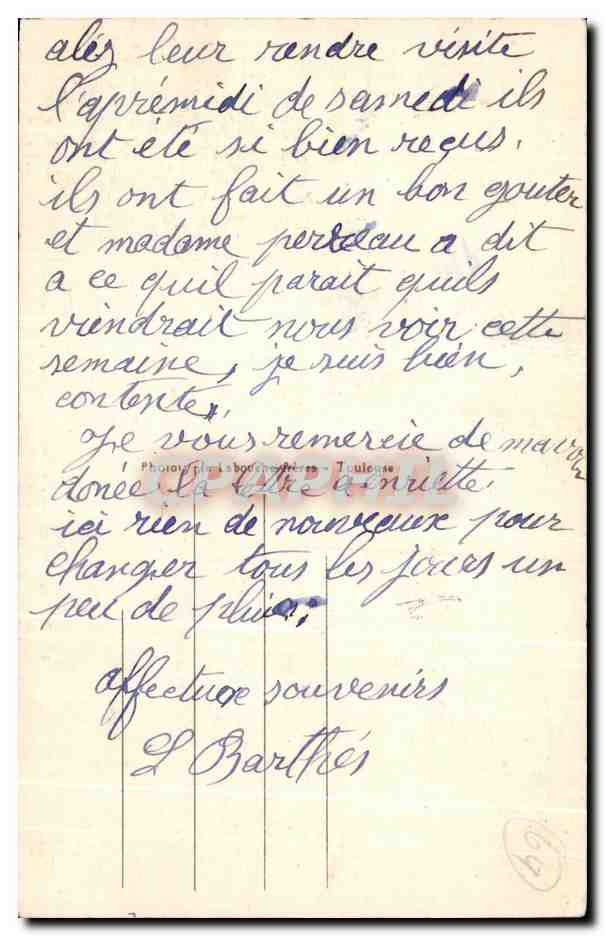 aléz leur rendre visite
l'aprémidi de samedi ils
ont été si bien reçus.
ils ont fait un bon gouter
et madame a dit
a ce quil parait quils
viendrait nous voir cette
semaine, je suis bien,
contente,,
Je vous remercie de mavoir
Phototypie Labouche frères - Toulouse
donée la letre a enriette.
ici rien de nouveaux pour
changer tous les jours un
peu de pluie;
affectuex souvenirs
L Barthés